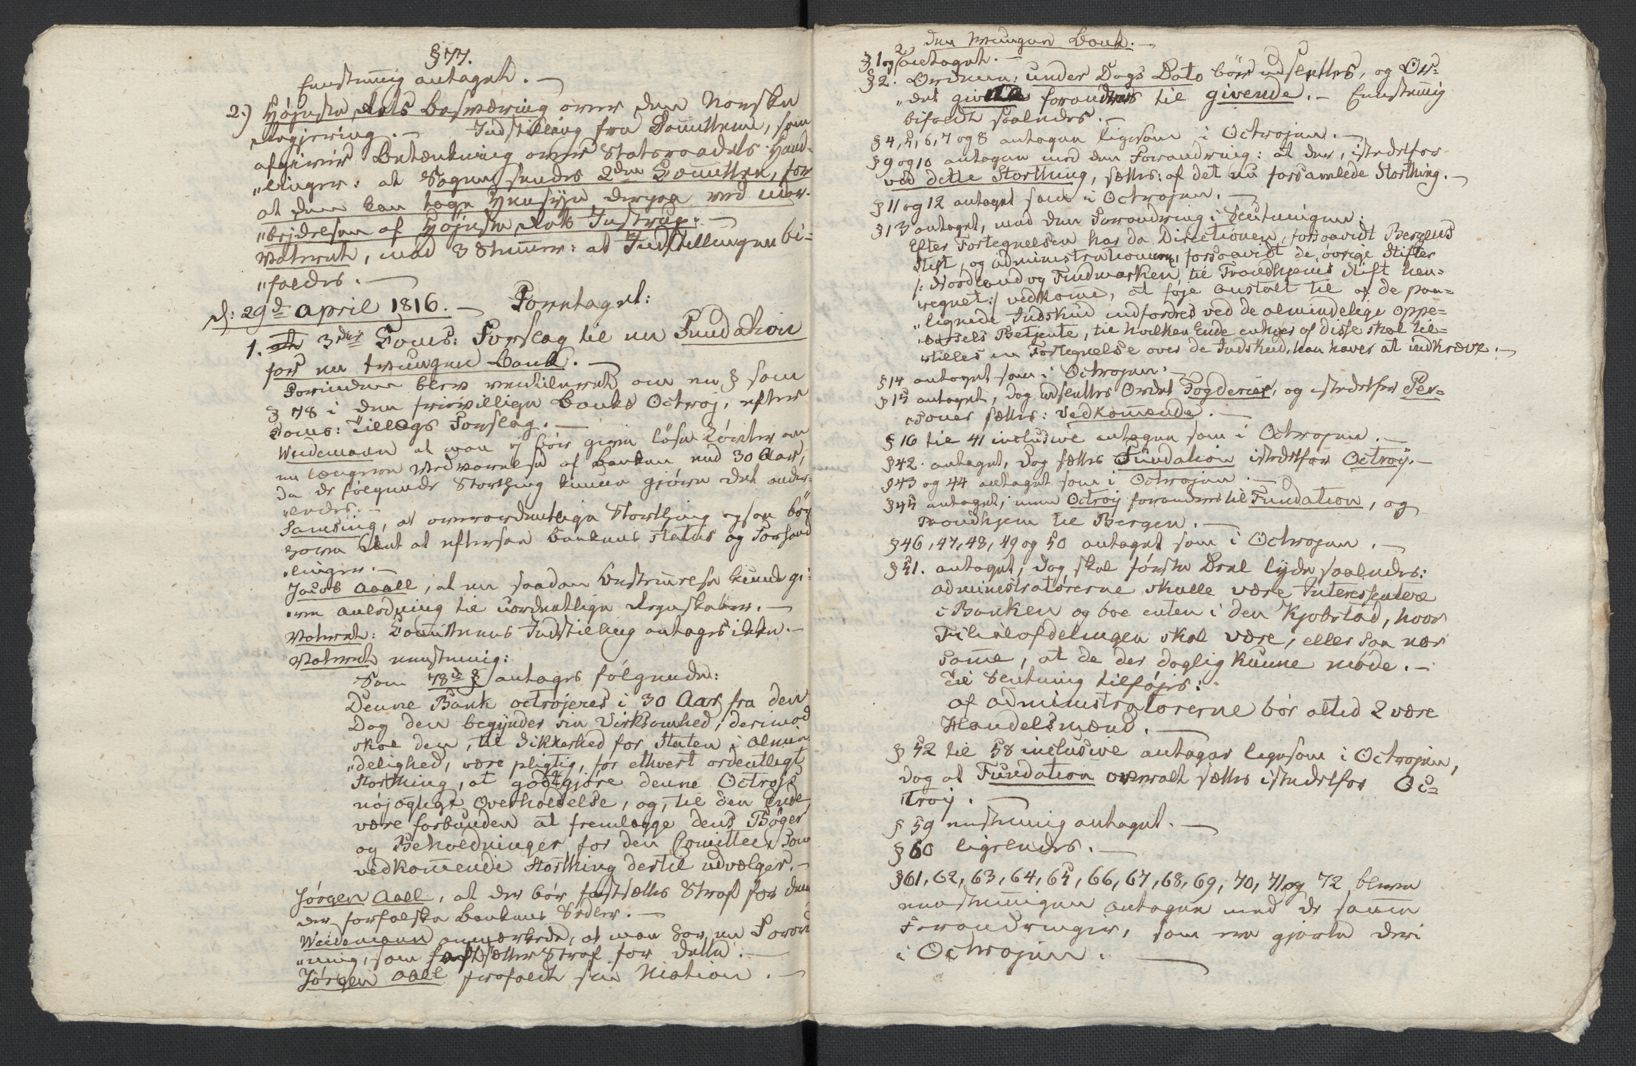 § 77.
Eenstemmig antaget. —
2.) Høieste Rets Besværing over den Norske
Regjering. — Indstilling fra Committeen, som
afgiver Betænkning over Statsraadets Hand-
„linger: at Sagen sendes 2den Comitteen, for
at den kan tage Hensyn dertil ved Udar-
„beidelsen af Høieste Rets Instrux. —
Voteret, med 3 Stemmer: at Indstillingen bi-
„faldes. —
d: 29de April 1816. — Foretaget:
1. 3die Coms: Forslag til en Fundation
for en tvungen Bank. —
Forinden blev ventileret om en § som
§ 78 i den frivillige Banks Octroj, efter
Coms: Tillægs Forslag. —
Weidemann at man ej bør give Løfter om
en længere Vedvarelse af Banken end 30 Aar,
da de følgende Storthing kunne gjøre det ander-
„ledes. —
Samsing, at overordentlige Storthing ogsaa bør
have Ret at efterse Bankens Status og Forhand-
„linger. —
Jacob Aaall, at en saadan Bestemmelse kunde gi-
„ve anledning til uordentlige Regnskaber. —
Voteret: Comitteens Indstilling antages ikke. —
Voteret eenstemmig:
Som 78de § antages følgende:
Denne Bank octrojeres i 30 Aar fra den
Dag den begynder sin Virksomhed, derimod
skal den, til Sikkerhed for Staten i Almin-
„delighed, være pligtig, for ethvert ordentligt
Storthing, at godtgjøre denne Octrojs
nøjagtige Overholdelse, og, til den Ende,
være forbunden at fremlægge dens Bøger
og Beholdninger for den Comittee, som
vedkommende Storthing dertil udvælger. —
Jørgen Aall, at der bør fastsættes Straf for den
der forfalske Bankens Sedler. —
Weidemann anmærkede, at man har en Forord-
„ning, som fastsætter Straf for dette. —
Jørgen Aall frafaldt sin Motion. —
den tvungne Bank. —
§ 1 og 2 antaget. —
§ 3. Ordene: under Dags Dato bør udslettes, og Or-
„det givne forandres til givende. — Eenstemmig
bifaldt saaledes. —
§ 4, 5, 6, 7 og 8 antagen ligesom i Octrojen. —
§ 9 og 10 antagen med den Forandring: at der, istedetfor
ved dette Storthing, sættes: af det nu forsamlede Storthing. —
§ 11 og 12 antaget som i Octrojen. —
§ 13 antaget, med den Forandring i Slutningen:
Efter Fortegnelsen har da Directionen, forsaavidt Bergens
Stift, og Administrationerne, forsaavidt de øvrige Stifter
/: Nordland og Findmarken til Trondhjems Stift hen-
regnet :/ vedkomme, at føje Anstalt til at de paa-
„lignede Indskud indfordres ved de almindelige Oppe-
„børsels Betjente, til hvilken Ende enhver af disse skal til-
stilles en Fortegnelse over de Indskud, han haver at indkræve. —
§ 14 antaget som i Octrojen.
§ 15 antaget, dog udslettes Ordet Fogderier, og istedetfor Per-
„soner sættes: Vedkommende. —
§ 16 til 41 inclusive antagen som i Octrojen. —
§ 42. antaget, dog sættes Fundation istedetfor Octroj. —
§ 43 og 44 antaget som i Octrojen. —
§ 45 antaget, men Octroj forandres til Fundation, og
Trondhjem til Bergen. —
§ 46, 47, 48, 49 og 50 antaget som i Octrojen. —
§ 51. antaget, dog skal første Deel lyde saaledes:
Administratorerne skulle være Interessentere
i Banken og boe enten i den Kjøbstad, hvor
Filialafdelingen skal være, eller saa nær
samme, at de der daglig kunne møde. —
Til Slutning tilføjes:
af Administratorerne bør altid 2 være
Handelsmænd. —
§ 52 til 58 inclusive antages ligesom i Octrojen,
dog at Fundation overalt sættes istedetfor Oc-
troj. —
§ 59 eenstemmig antaget. —
§ 60 ligeledes. —
§ 61, 62, 63, 64, 65, 66, 67, 68, 69, 70, 71 og 72 bleven
eenstemmigen antagen med de samme
Forandringer, som ere gjorte deri
i Octrojen. —